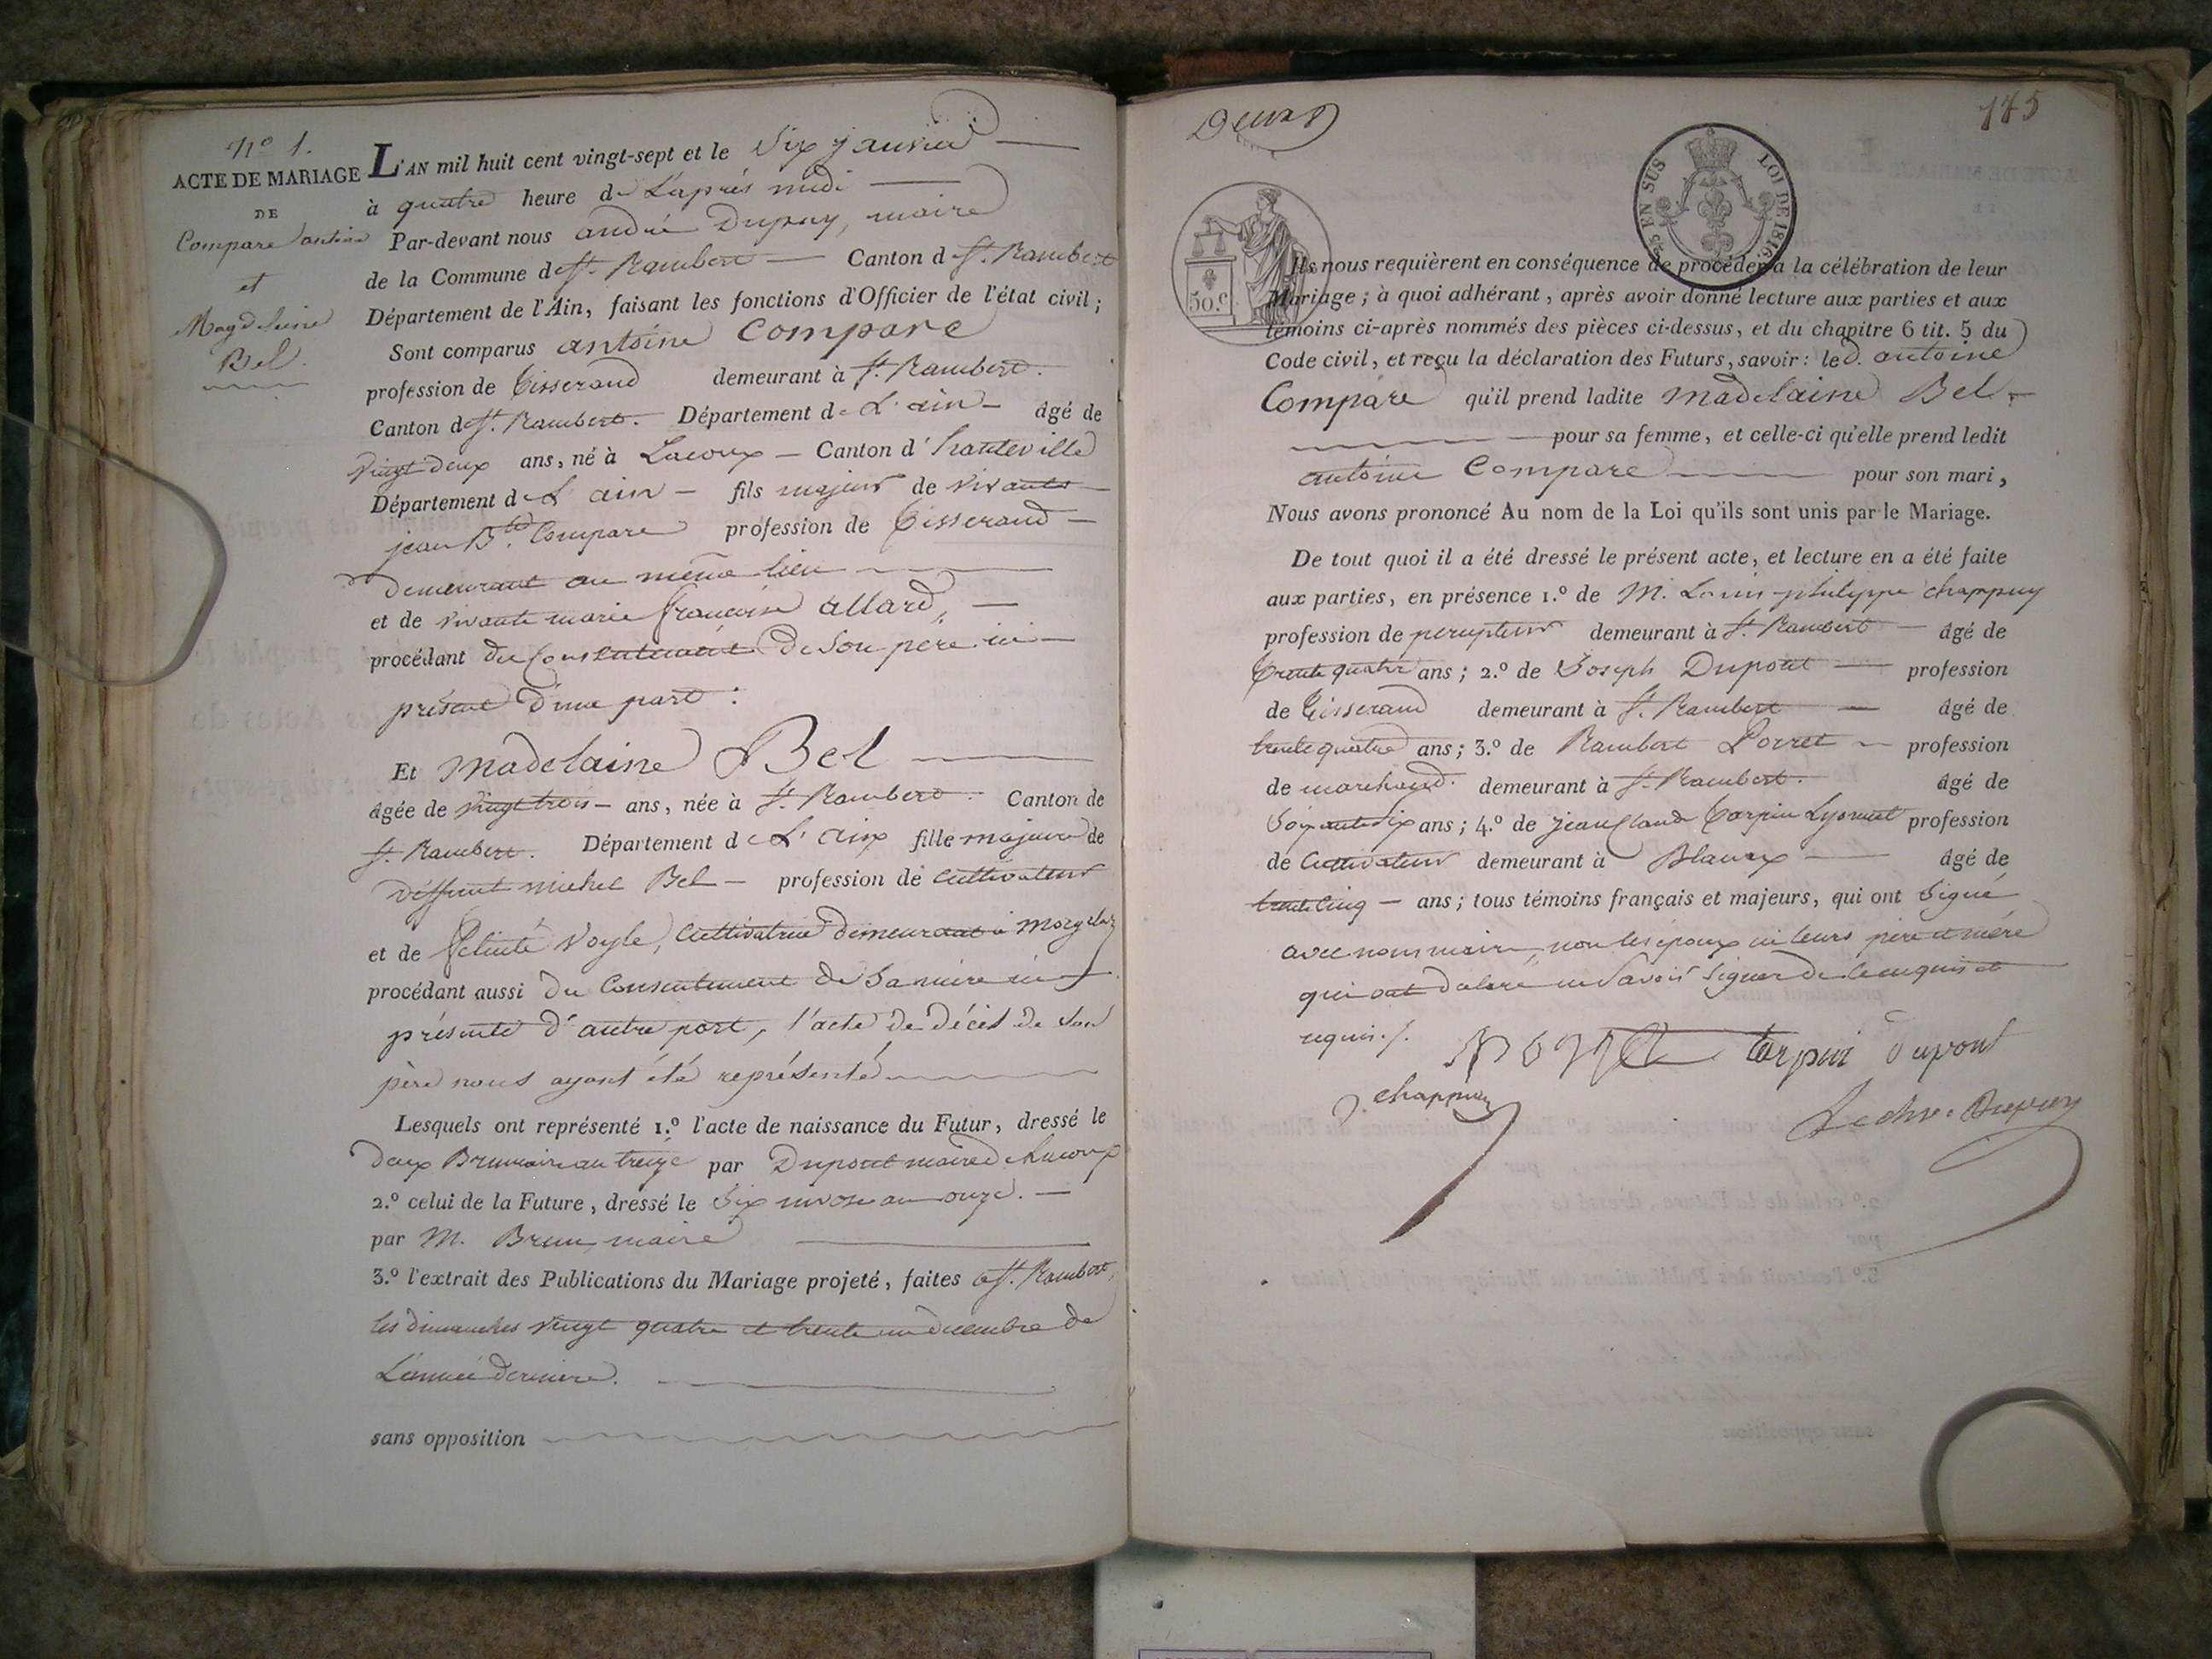 N° 1.
ACTE DE MARIAGE
DE
Compare antoine
et
Magdeleine
Bel.
L'AN mil huit cent vingt-sept et le Six janvier
à quatre heure de L'après midi
Par-devant nous andré Dupuy, maire
de la Commune de St. Rambert Canton d St. Rambert
Département de l'Ain, faisant les fonctions d'Officier de l'état civil;
Sont comparus antoine Compare
profession de Tisserand demeurant à St. Rambert.
Canton d St. Rambert. Département de L'ain âgé de
vingt deux ans, né à Lacoux Canton d'hauteville
Département de L'ain fils majeur de vivants
jean Bte. Compare profession de Tisserand
demeurant au même lieu
et de vivante marie francoise allard,
procédant du Consentement de Son père ici
présent d'une part:
Et Madelaine Bel
âgée de vingt trois ans, née à St. Rambert. Canton de
St. Rambert. Département de L'ain fille majeure de
déffunt michel Bel profession de cultivateur
et de felicité Voyle, Cultivatrice demeurant à
procédant aussi du Consentement de Sa mère ici
présente d'autre part, l'acte de décès de son
père nous ayant été représenté
Lesquels ont représenté 1.° l'acte de naissance du Futur, dressé le
deux Brumaire an treize par Dupont maire de Lacoux
2.° celui de la Future, dressé le Six nivose an onze.
par M. Brun, maire
3.° l'extrait des Publications du Mariage projeté, faites à St. Rambert,
les dimanches vingt quatre et trente un décembre de
L'année dernière.
sans opposition
Deux
145
25 EN SUS LOI DE 1816.
50.c
Ils nous requièrent en conséquence de procéder à la célébration de leur
Mariage; à quoi adhérant, après avoir donné lecture aux parties et aux
témoins ci-après nommés des pièces ci-dessus, et du chapitre 6 tit. 5 du
Code civil, et reçu la déclaration des Futurs, savoir: led. antoine
Compare qu'il prend ladite Madelaine Bel
pour sa femme, et celle-ci qu'elle prend ledit
antoine Compare pour son mari,
Nous avons prononcé Au nom de la Loi qu'ils sont unis par le Mariage.
De tout quoi il a été dressé le présent acte, et lecture en a été faite
aux parties, en présence 1.° de M. Louis philippe chappuy
profession de percepteur demeurant à St. Rambert âgé de
trente quatre ans; 2.° de Joseph Dupont profession
de Tisserand demeurant à St. Rambert âgé de
trente quatre ans; 3.° de Rambert Porret profession
de marchand. demeurant à St. Rambert. âgé de
Soixante six ans; 4.° de jean Claude Carpin Lyonnet profession
de Cultivateur demeurant à Blanaz âgé de
trente cinq ans; tous témoins français et majeurs, qui ont Signé
avec nous maire, non les époux ni leurs père et mère
qui ont déclaré ne Savoir Signer de ce enquis et
requis./.
dupont
chappuy
Dupuy